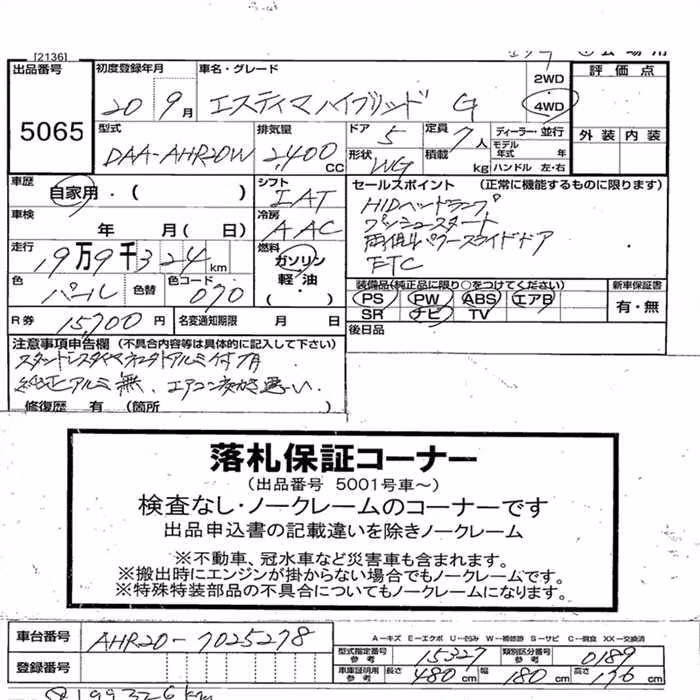 [2136]
出品番号
5065
初度登録年月
20 9月
車名・グレード
エスティマハイブリッド G
2WD
4WD
評価点
外装 内装
型式
DAA-AHR20W
排気量
2,400
CC
ドア
5
定員
7人
形状
WG
積載
kg
ディーラー・並行
モデル年式 年
ハンドル 左・右
車歴
自家用・( )
シフト
IAT
車検
年 月( 日)
冷房
AAC
走行
19万9千324km
燃料
ガソリン
軽油
( )
色
パール
色替
色コード
070
R券
15,700円
名変通知期限 月 日
セールスポイント (正常に機能するものに限ります)
HIDヘッドランプ
プッシュスタート
両側パワースライドドア
ETC
装備品(純正品に限り○をつけてください)
PS PW ABS エアB
SR ナビ TV
新車保証書
有・無
後日品
注意事項申告欄 (不具合内容等は具体的に記入して下さい)
純正アルミ無、エアコン
修復歴 有 (箇所 )
落札保証コーナー
(出品番号 5001号車～)
検査なし・ノークレームのコーナーです
出品申込書の記載違いを除きノークレーム
※不動車、冠水車など災害車も含まれます。
※搬出時にエンジンが掛からない場合でもノークレームです。
※特殊特装部品の不具合についてもノークレームになります。
車台番号
AHR20-7025278
登録番号
A―キズ E―エクボ U―凹み W―補修跡 S―サビ C―腐食 XX―交換済
型式指定番号 参考 15327
類別区分番号 参考 0189
車庫証明用 参考 長さ 480cm 幅 180cm 高さ 176cm
199326km